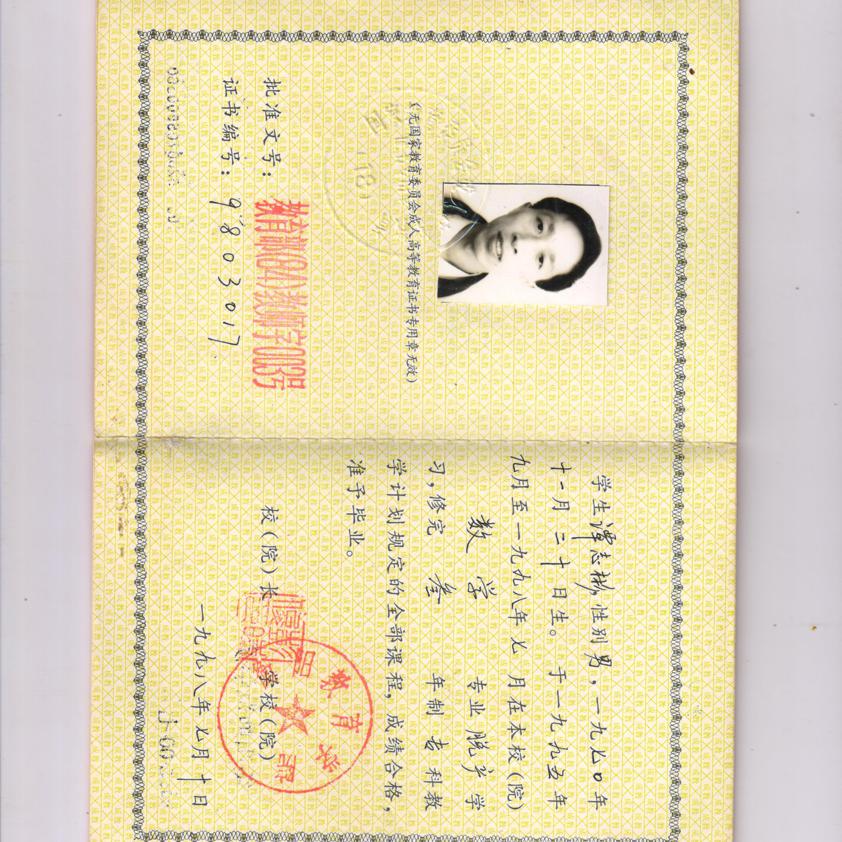 (无国家教育委员会成人高等教育证书专用章无效)
批准文号:
教师字003号
证书编号: 9803017
学生 谭志彬, 性别 男, 一九七〇年
十一月 二十 日生。于一九九五年
九月至一九九八年 七 月在本校(院)
数学 专业 脱产 学
习, 修完 叁 年制 专 科教
学计划规定的全部课程, 成绩合格,
准予毕业。
校(院)长
学校(院)
教育学院
一九九八年七月十日